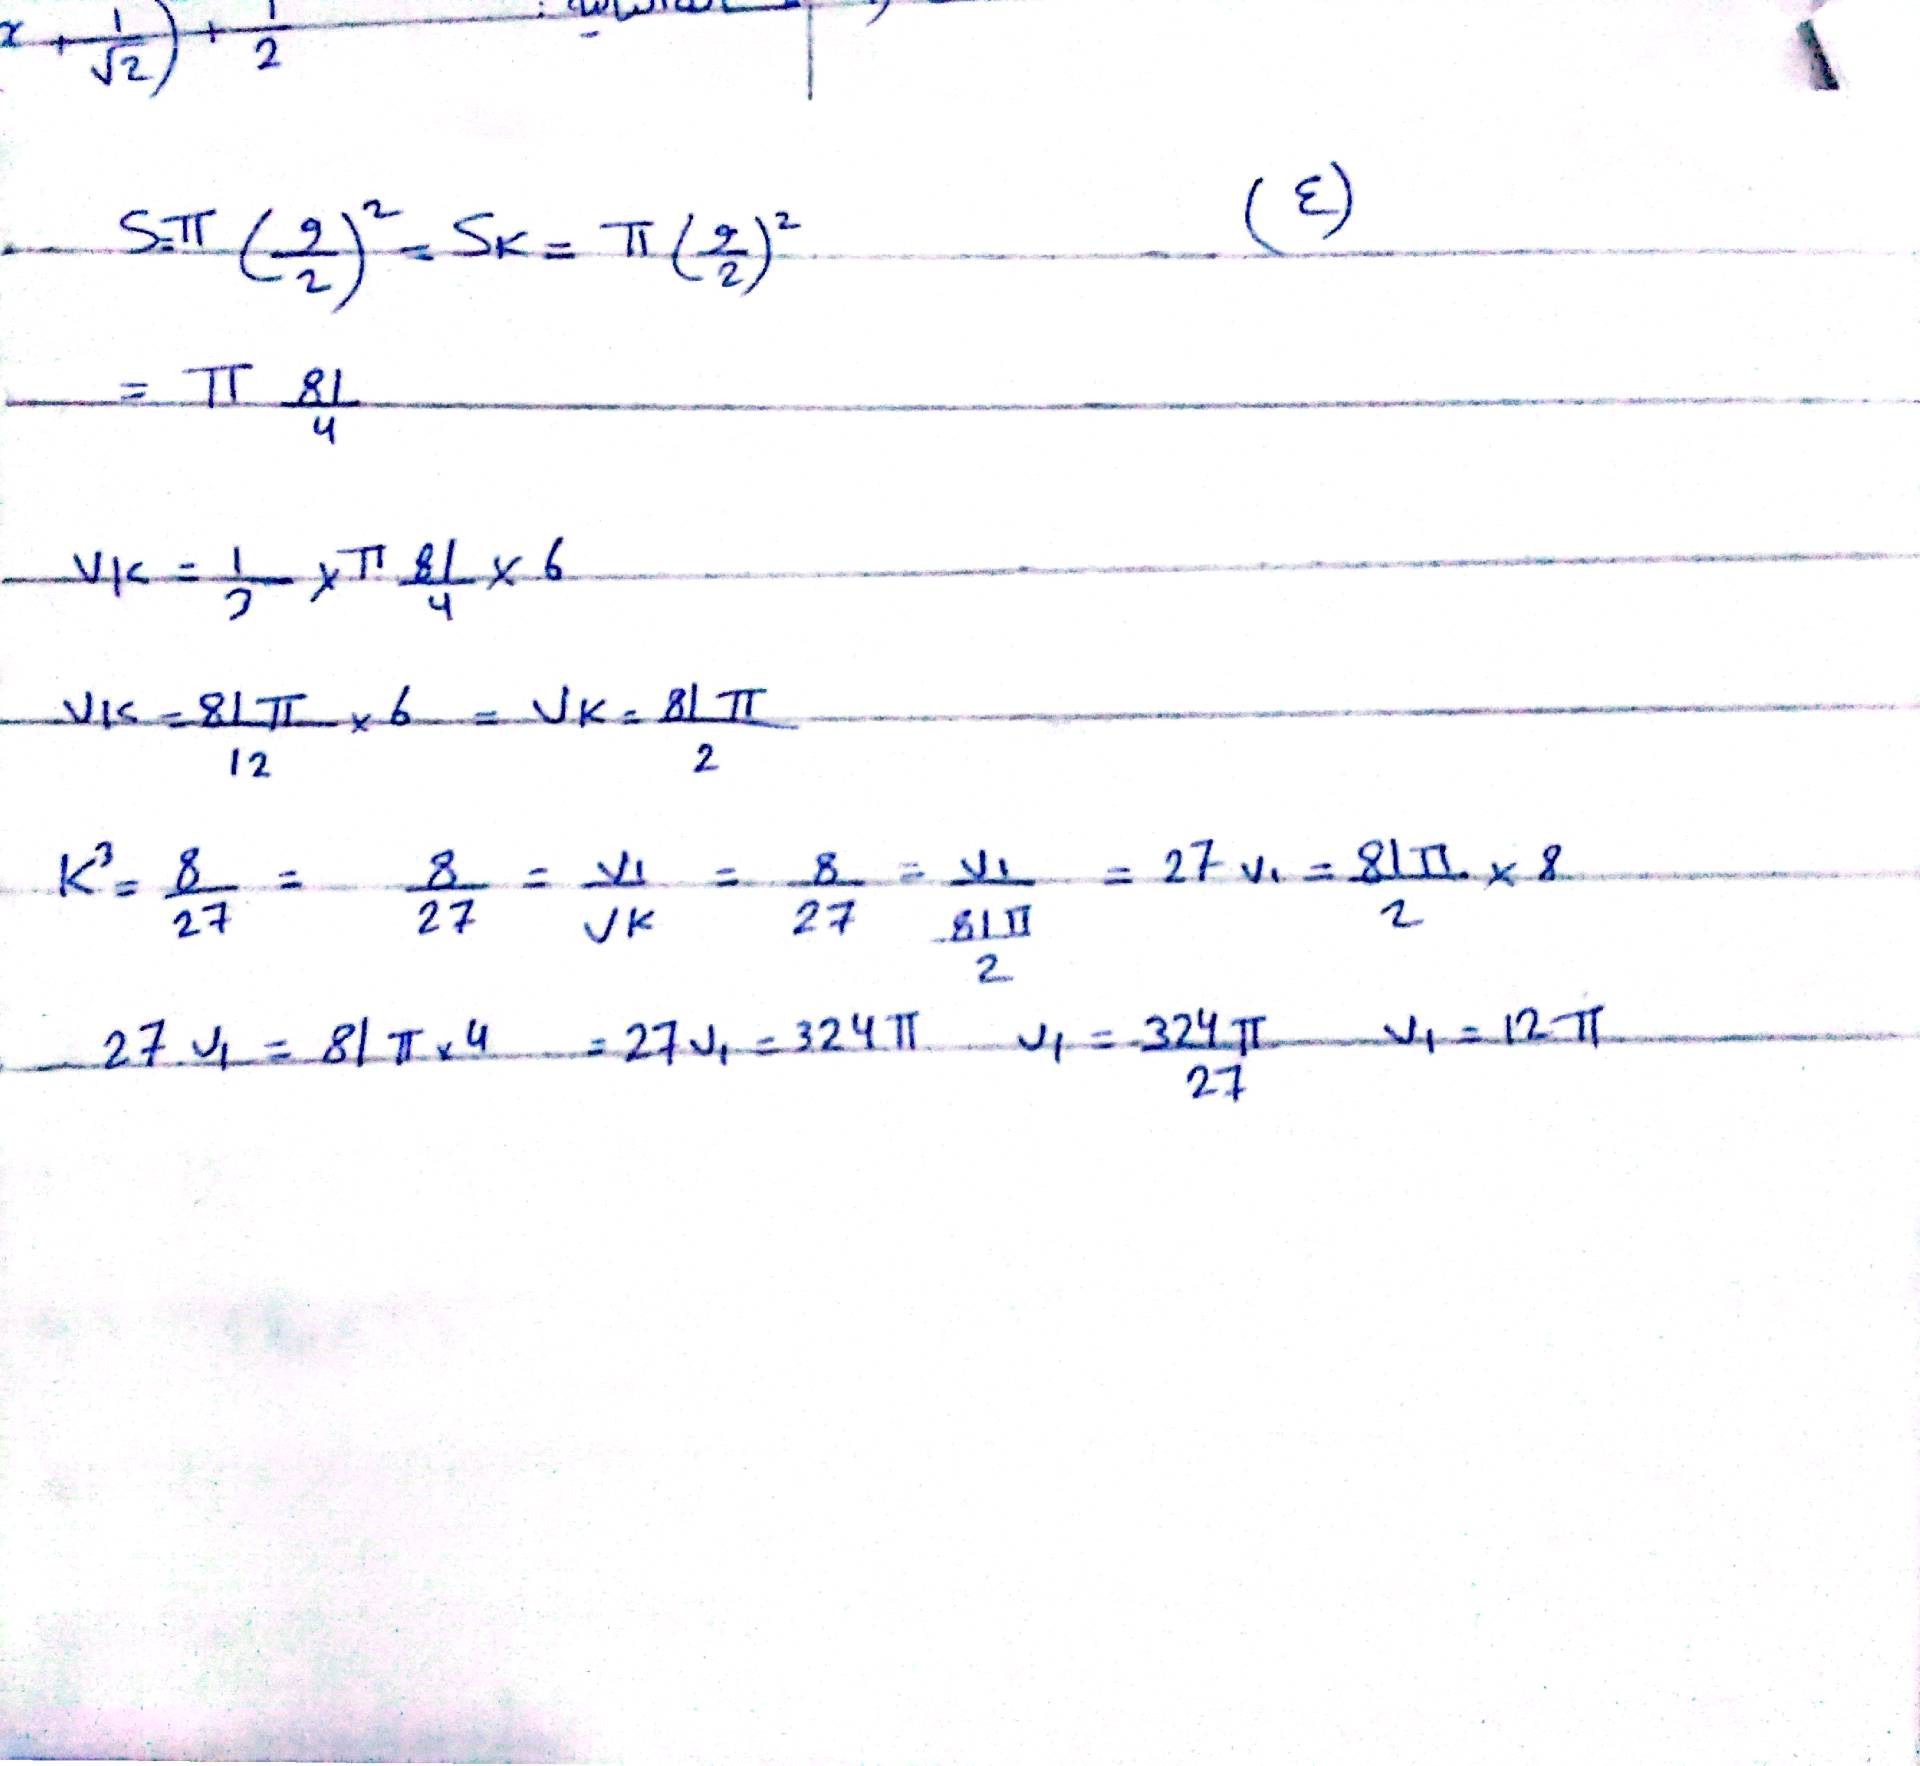 x + 1/√2) + 1/2
(٤)
S=π (9/2)² = SK = π (9/2)²
= π 81/4
VK = 1/3 × π 81/4 × 6
VK = 81π/12 × 6 = VK = 81π/2
K³ = 8/27 = 8/27 = V1/VK = 8/27 = V1/(81π/2) = 27 V1 = 81π/2 × 8
27 V1 = 81 π × 4 = 27 V1 = 324 π V1 = 324 π/27 V1 = 12 π